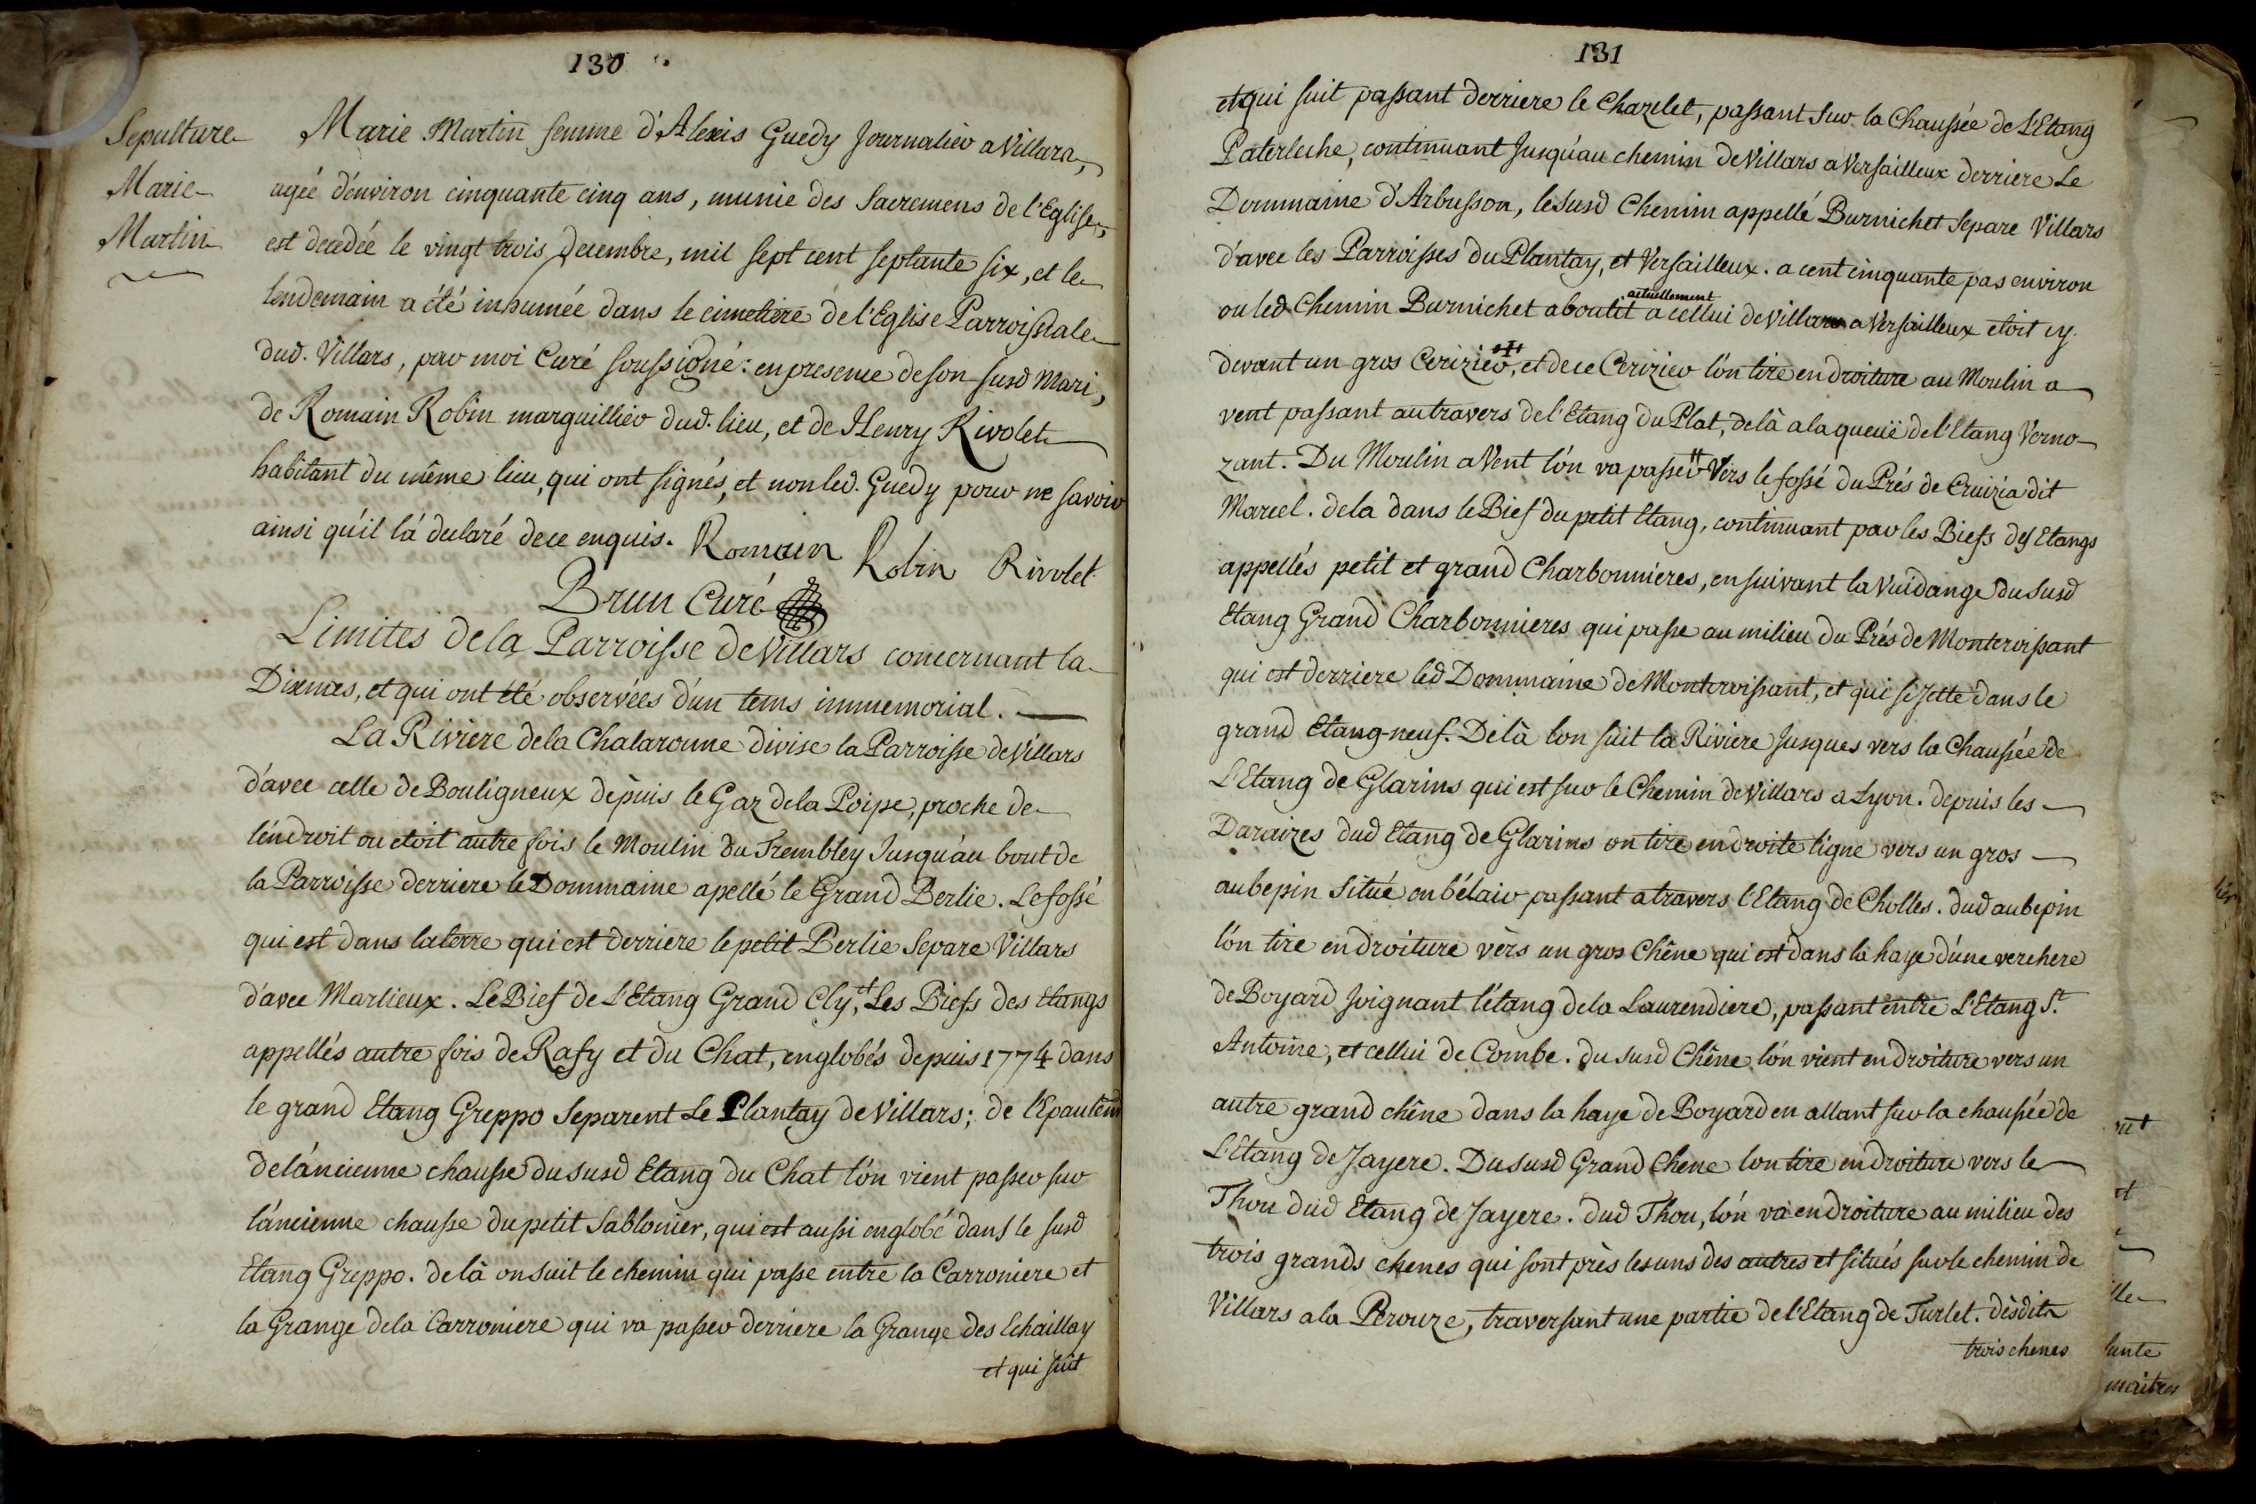 130
Sepulture
Marie
Martin
Marie Martin femme d'Alexis Guedy Journalier a Villars,
agée d'environ cinquante cinq ans, munie des Sacremens de l'Eglise,
est decedée le vingt trois Decembre, mil sept cent septante six, et le
lendemain a été inhumée dans le cimetiere de l'Eglise Parroissiale
dud. Villars, par moi Curé soussigné: en presence de son susd Mari,
de Romain Robin marguillier dud. lieu, et de Henry Rivolet
habitant du même lieu, qui ont signés, et non led. Guedy pour ne savoir
ainsi qu'il l'a declaré de ce enquis. Romain Robin Rivolet
Brun Curé
Limites de la Parroisse de Villars concernant la
Dixmes, et qui ont été observées d'un tems immemorial.
La Riviere de la Chalaronne divise la Parroisse de Villars
d'avec celle de Bouligneux depuis le Gaz de la Poipe, proche de
l'endroit ou etoit autre fois le Moulin du Trembley Jusqu'au bout de
la Parroisse derriere le Dommaine apellé le Grand Berlie. Le fossé
qui est dans la terre qui est derriere le petit Berlie Separe Villars
d'avec Marlieux. Le Bief de L'Etang Grand Cly, et Les Biefs des Etangs
appellés autre fois de Rafy et du Chat, englobés depuis 1774 dans
le grand Etang Greppo Separent Le Plantay de Villars; de l'Epaulem
de l'ancienne chausse du susd Etang du Chat l'on vient passer sur
l'ancienne chausse du petit Sablonier, qui est aussi englobé dans le susd
Etang Greppo. de là on suit le chemin qui passe entre la Carroniere et
la Grange de la Carroniere qui va passer derriere la Grange des Echaillay
et qui suit
131
et qui suit passant derriere le Chazelet, passant sur la Chaussée de L'Etang
Paterleche, continuant Jusqu'au chemin de Villars a Versailleux derriere Le
Dommaine d'Arbusson, le susd Chemin appellé Burnichet Separe Villars
d'avec les Parroisses du Plantay, et Versailleux. a cent cinquante pas environ
ou led Chemin Burnichet aboutit actuellement a cellui de Villars a Versailleux etoit cy
devant un gros Cerizier, et de ce Cerizier l'on tire en droiture au Moulin a
vent passant au travers de l'Etang du Plat, de là a la queuë de l'Etang Verno-
zant. Du Moulin a Vent l'on va passer Vers le fossé du Prés de Cruizia dit
Marcel. de la dans le Bief du petit Etang, continuant par les Biefs des Etangs
appellés petit et grand Charbonnieres, en suivant la Vuidange du susd
Etang Grand Charbonnieres qui passe au milieu du Prés de Monteroissant
qui est derriere led Dommaine de Monteroissant, et qui se jette dans le
grand Etang-neuf. De là l'on suit la Riviere Jusques vers la Chaussée de
L'Etang de Glarins qui est sur le Chemin de Villars a Lyon. depuis les
Daraizes dud Etang de Glarins on tire en droite ligne vers un gros
aubepin Situé en bélair passant a travers l'Etang de Cholles. dud aubepin
l'on tire en droiture vers un gros Chêne qui est dans la haye d'une verchere
de Boyard Joignant l'étang de la Laurendiere, passant entre L'Etang St.
Antoine, et cellui de Combe. du susd Chêne l'on vient en droiture vers un
autre grand chêne dans la haye de Boyard en allant sur la chaussée de
L'Etang de Jayere. Du susd Grand Chene l'on tire en droiture vers le
Thou dud Etang de Jayere. dud Thou, l'on va en droiture au milieu des
trois grands chenes qui sont près les uns des autres et situés sur le chemin de
Villars a la Perouze, traversant une partie de l'Etang de Turlet. desdits
trois chenes